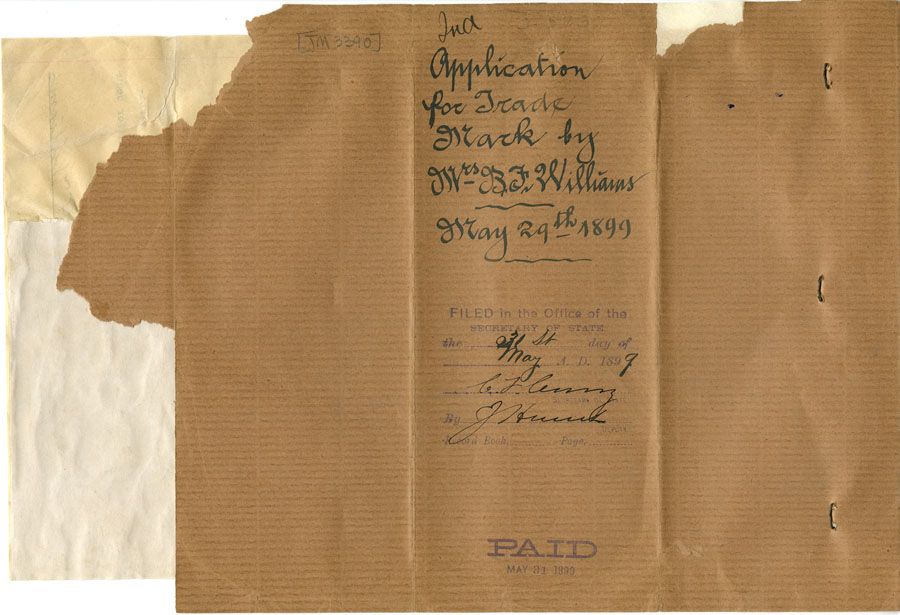 [TM 3390]
Ind
Application
for Trade
Mark by
Mrs B.F. Williams
May 29th 1899
FILED in the Office of the
SECRETARY OF STATE
the 31st day of
May A. D. 1899
By
Record Book, Page,
PAID
MAY 31 1899